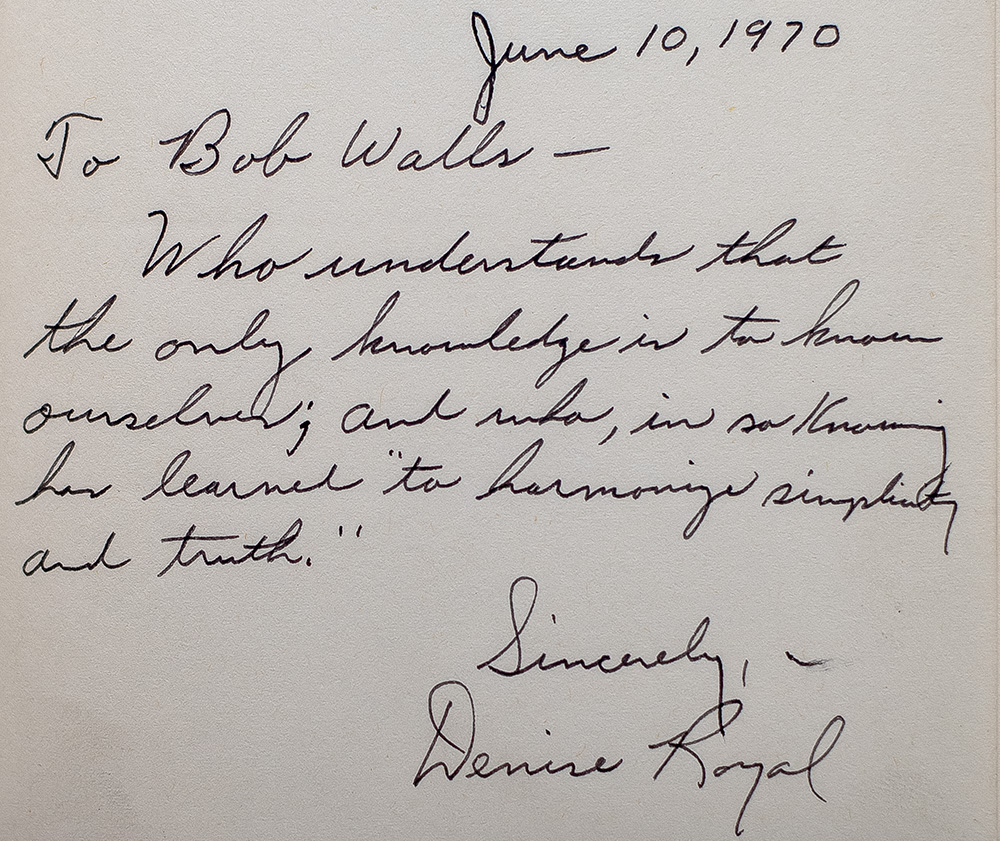 June 10, 1970
To Bob Walls —
Who understands that
the only knowledge is to know
ourselves; and who, in so knowing
has learned "to harmonize simplicity
and truth."
Sincerely, ~
Denise Royal